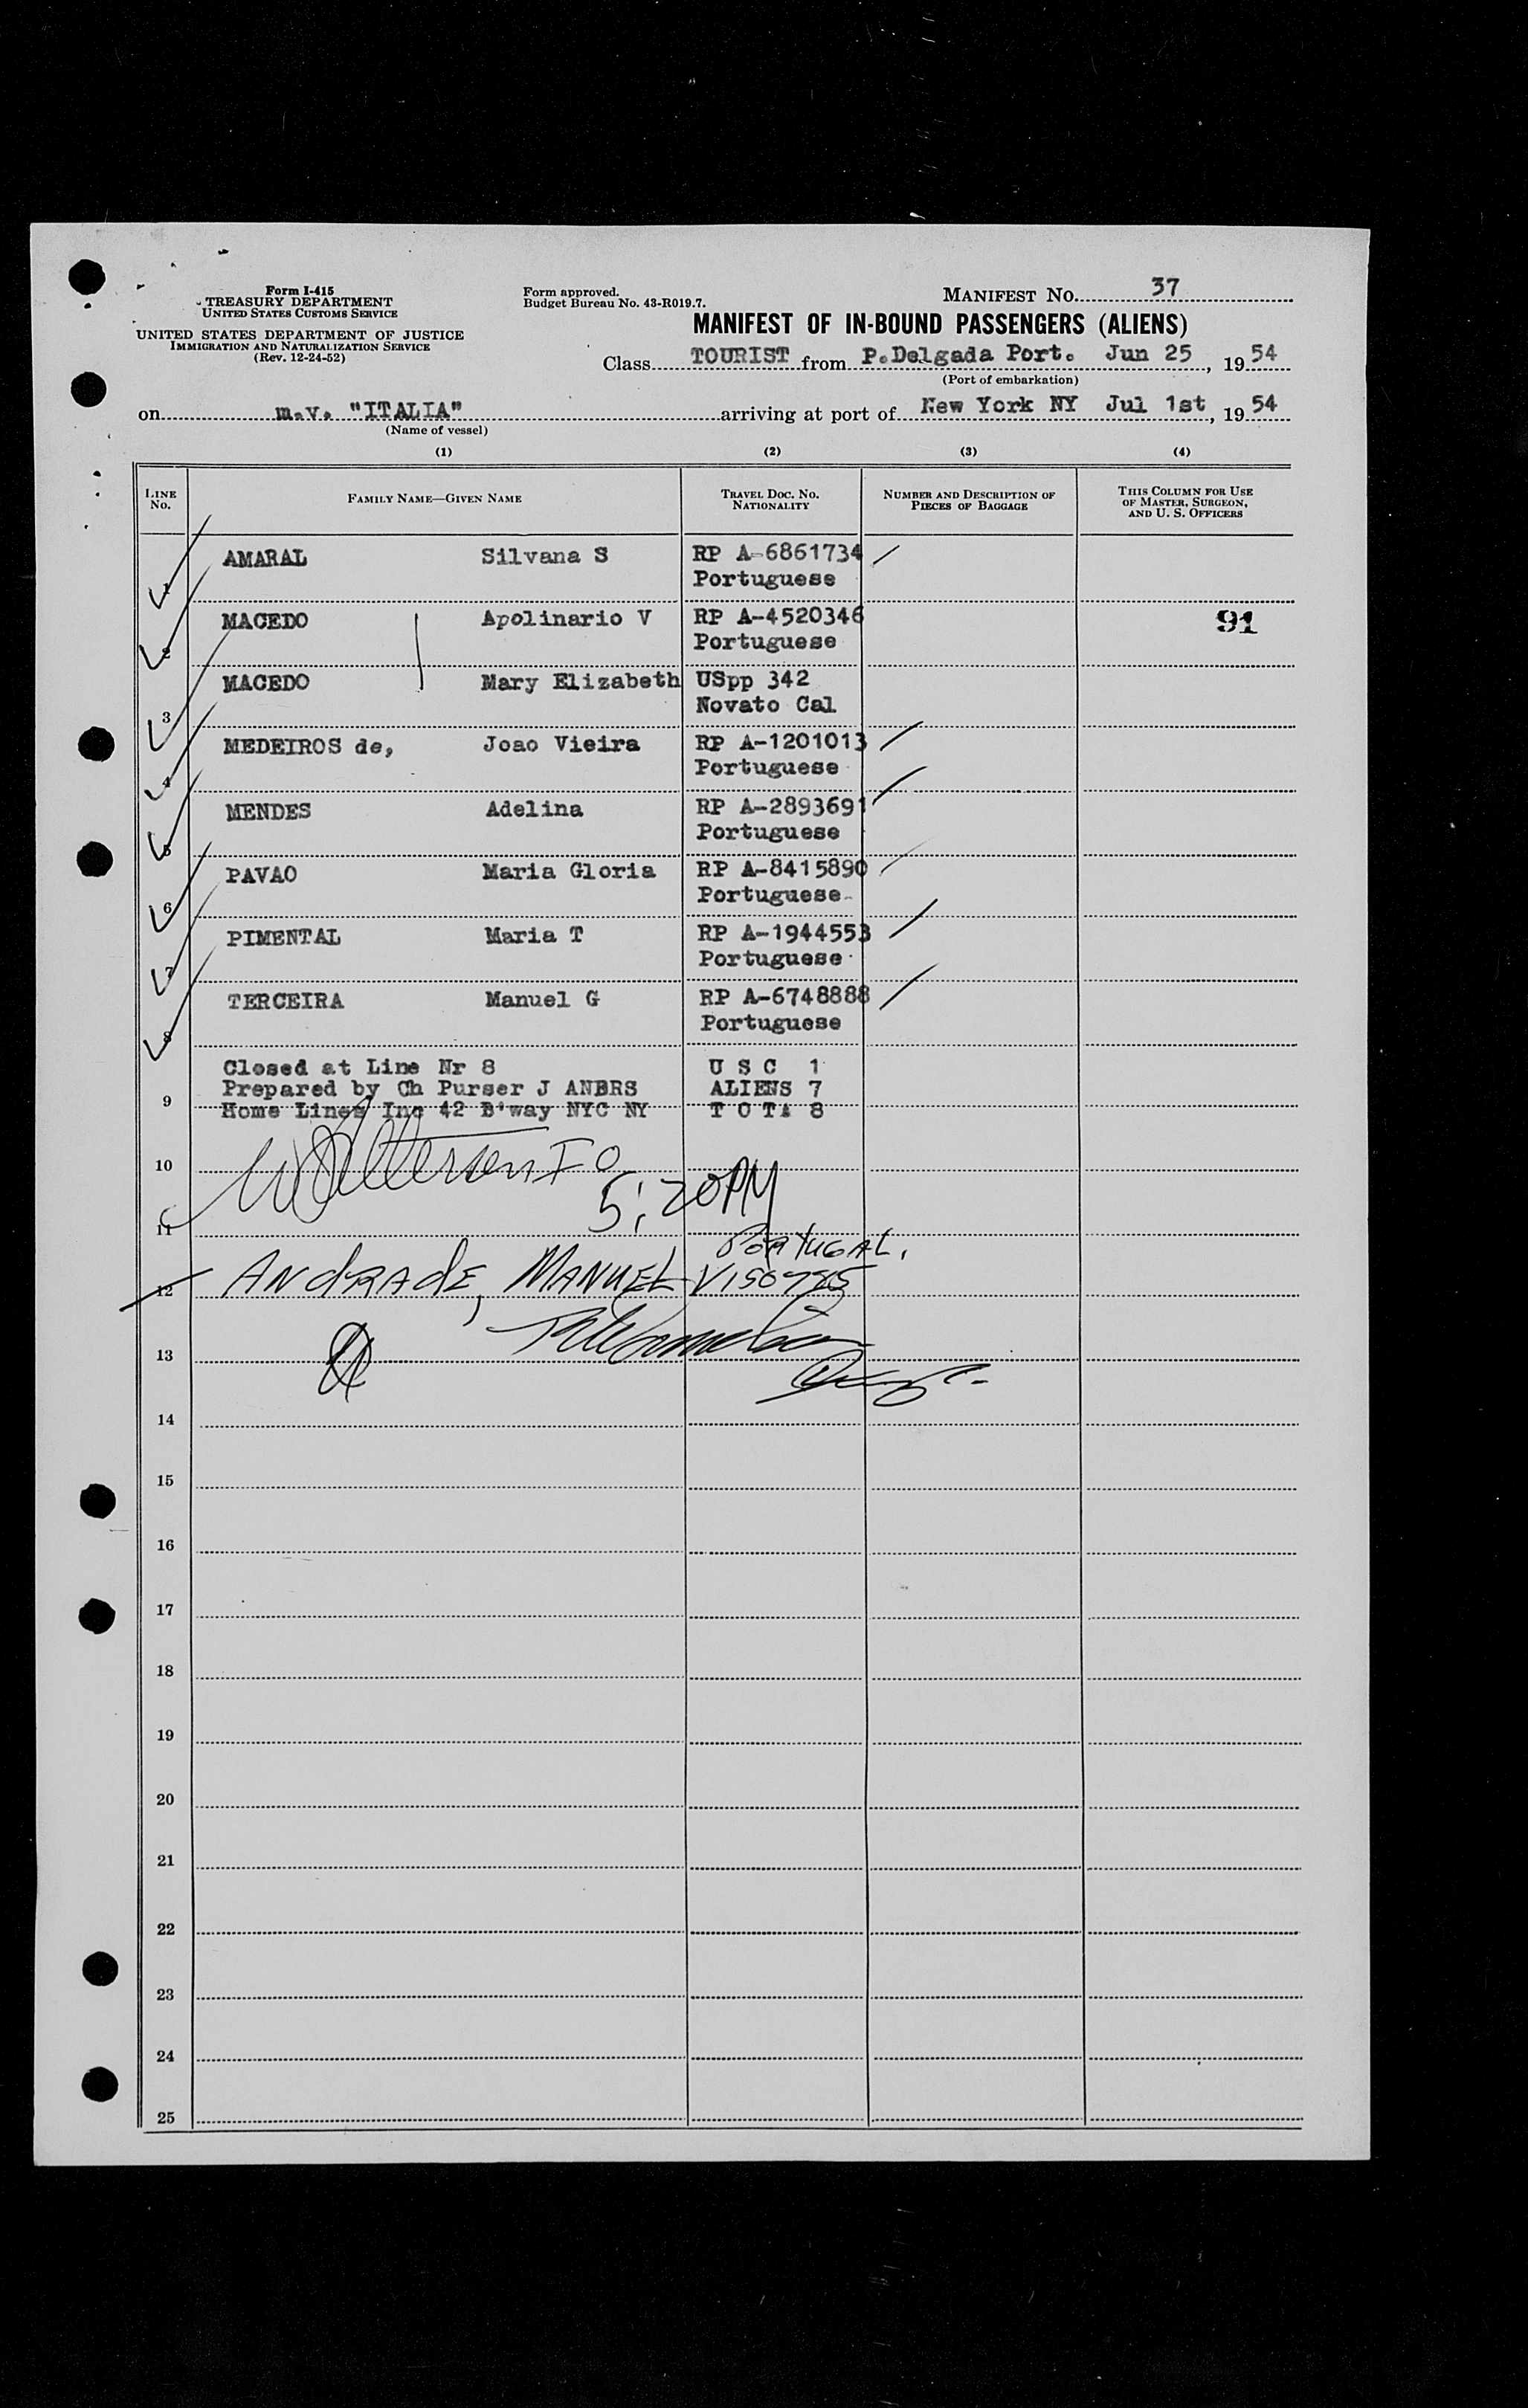 Form I-415
TREASURY DEPARTMENT
UNITED STATES CUSTOMS SERVICE
UNITED STATES DEPARTMENT OF JUSTICE
IMMIGRATION AND NATURALIZATION SERVICE
(Rev. 12-24-52)
Form approved.
Budget Bureau No. 43-R019.7.
MANIFEST NO. 37
MANIFEST OF IN-BOUND PASSENGERS (ALIENS)
Class TOURIST from P.Delgada Port. Jun 25, 1954
(Port of embarkation)
on m.v. "ITALIA" arriving at port of New York NY Jul 1st, 1954
(Name of vessel)
(1) (2) (3) (4)
LINE No. FAMILY NAME—GIVEN NAME TRAVEL DOC. NO. NATIONALITY NUMBER AND DESCRIPTION OF PIECES OF BAGGAGE THIS COLUMN FOR USE OF MASTER, SURGEON, AND U. S. OFFICERS
1 AMARAL Silvana S RP A-6861734
Portuguese
2 MACEDO Apolinario V RP A-4520346 91
Portuguese
3 MACEDO Mary Elizabeth USpp 342
Novato Cal
4 MEDEIROS de, Joao Vieira RP A-1201013
Portuguese
5 MENDES Adelina RP A-2893691
Portuguese
6 PAVAO Maria Gloria RP A-8415890
Portuguese
7 PIMENTAL Maria T RP A-1944553
Portuguese
8 TERCEIRA Manuel G RP A-6748888
Portuguese
Closed at Line Nr 8 U S C 1
Prepared by Ch Purser J ANBRS ALIENS 7
9 Home Lines Inc 42 B'way NYC NY T O T: 8
10
5:20PM
11
PORTUGAL.
12 ANDRADE, MANUEL
13
14
15
16
17
18
19
20
21
22
23
24
25